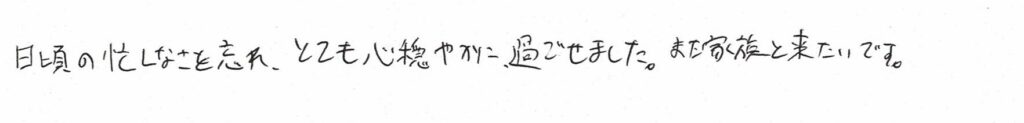 日頃の忙しなさを忘れ、とても心穏やかに過ごせました。また家族と来たいです。